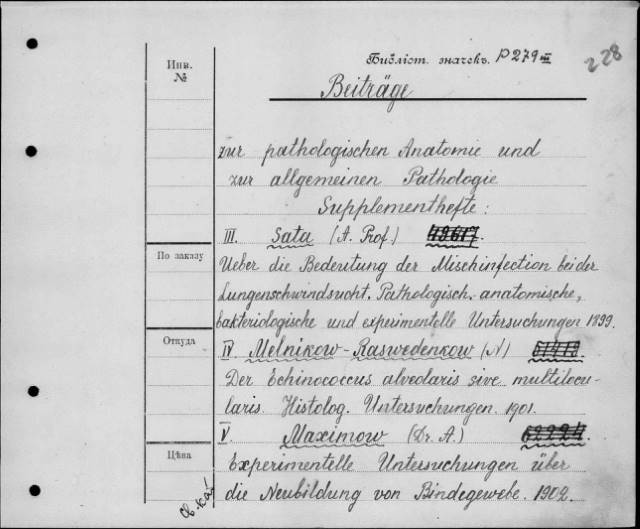 228
Библіот. значекъ. P279 III
Инв.
№
Beiträge
zur pathologischen Anatomie und
zur allgemeinen Pathologie
Supplementhefte:
III. Sata (A. Prof.) 48617.
По заказу
Ueber die Bedeutung der Mischinfection bei der
Lungenschwindsucht. Pathologisch. anatomische,
bakteriologische und experimentelle Untersuchungen 1899.
Откуда
IV Melnikow-Raswedenkow (N)
Der Echinococcus alveolaris sive multilocu-
laris. Histolog. Untersuchungen. 1901.
V. Maximow (Dr. A.) 62224.
Цѣна
Experimentelle Untersuchungen über
die Neubildung von Bindegewebe. 1902.